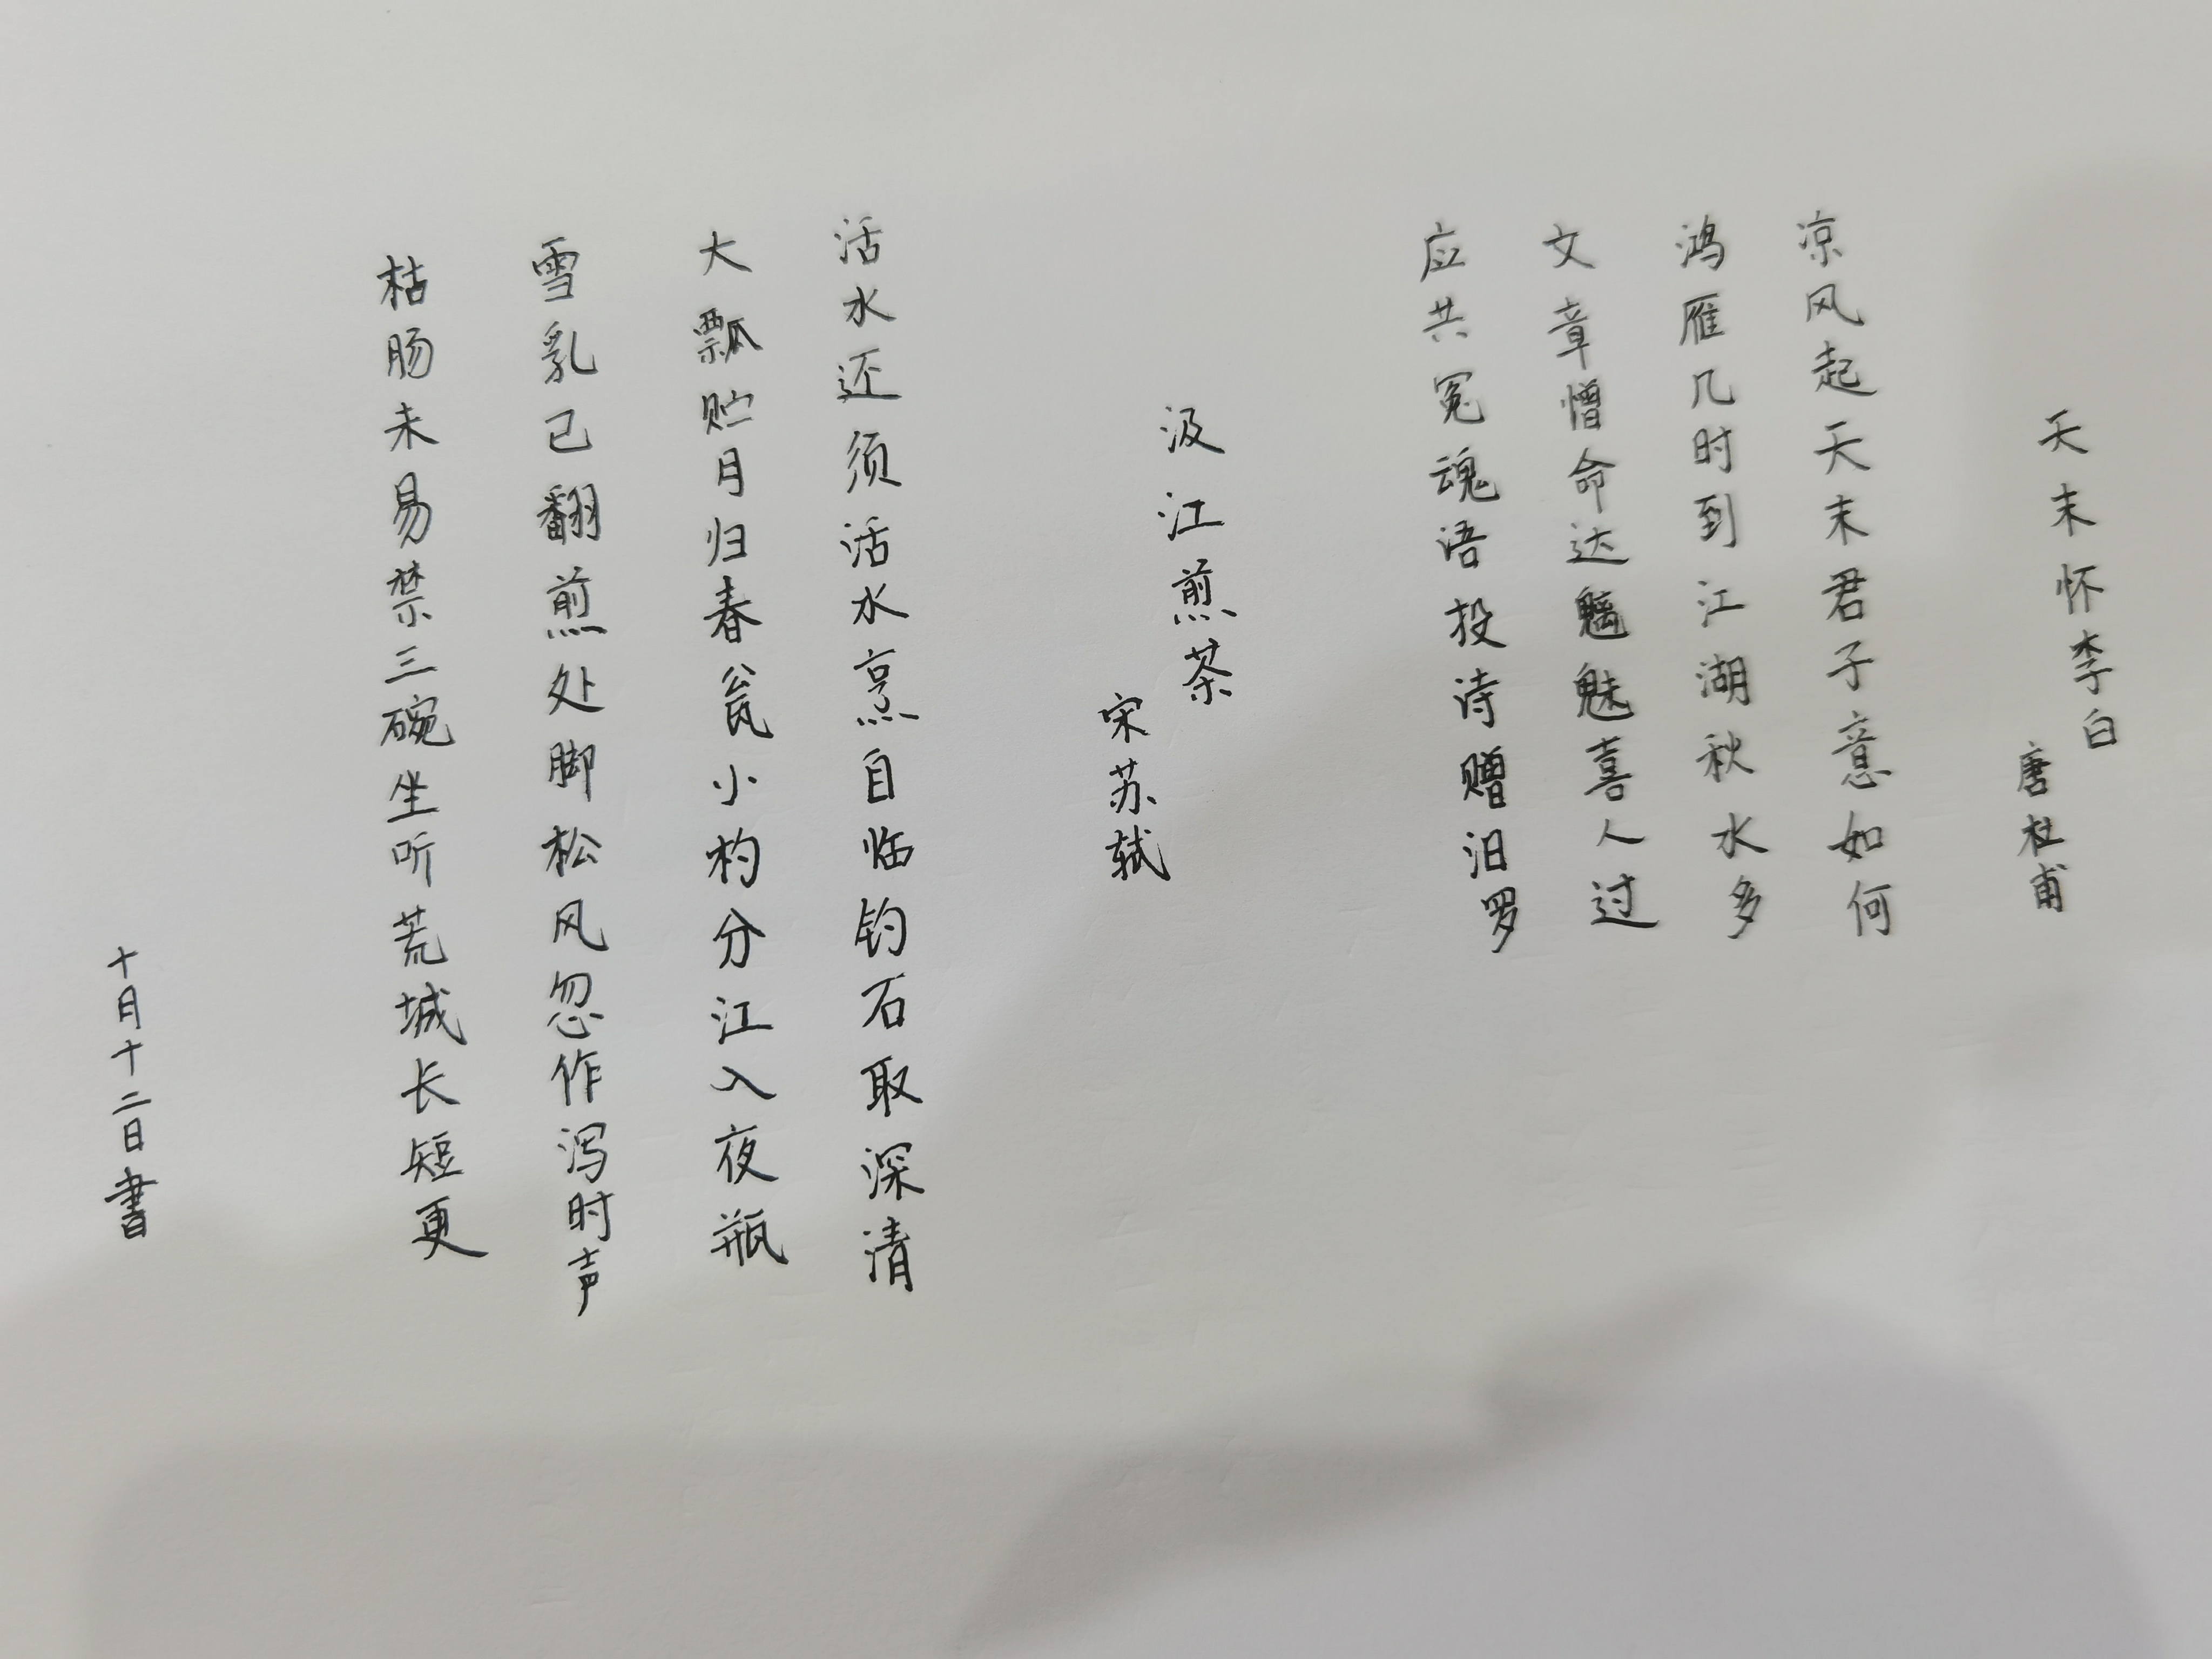 天末怀李白
唐杜甫
凉风起天末君子意如何
鸿雁几时到江湖秋水多
文章憎命达魑魅喜人过
应共冤魂语投诗赠汨罗
汲江煎茶
宋苏轼
活水还须活水烹自临钓石取深清
大瓢贮月归春瓮小杓分江入夜瓶
雪乳已翻煎处脚松风忽作泻时声
枯肠未易禁三碗坐听荒城长短更
十月十二日書